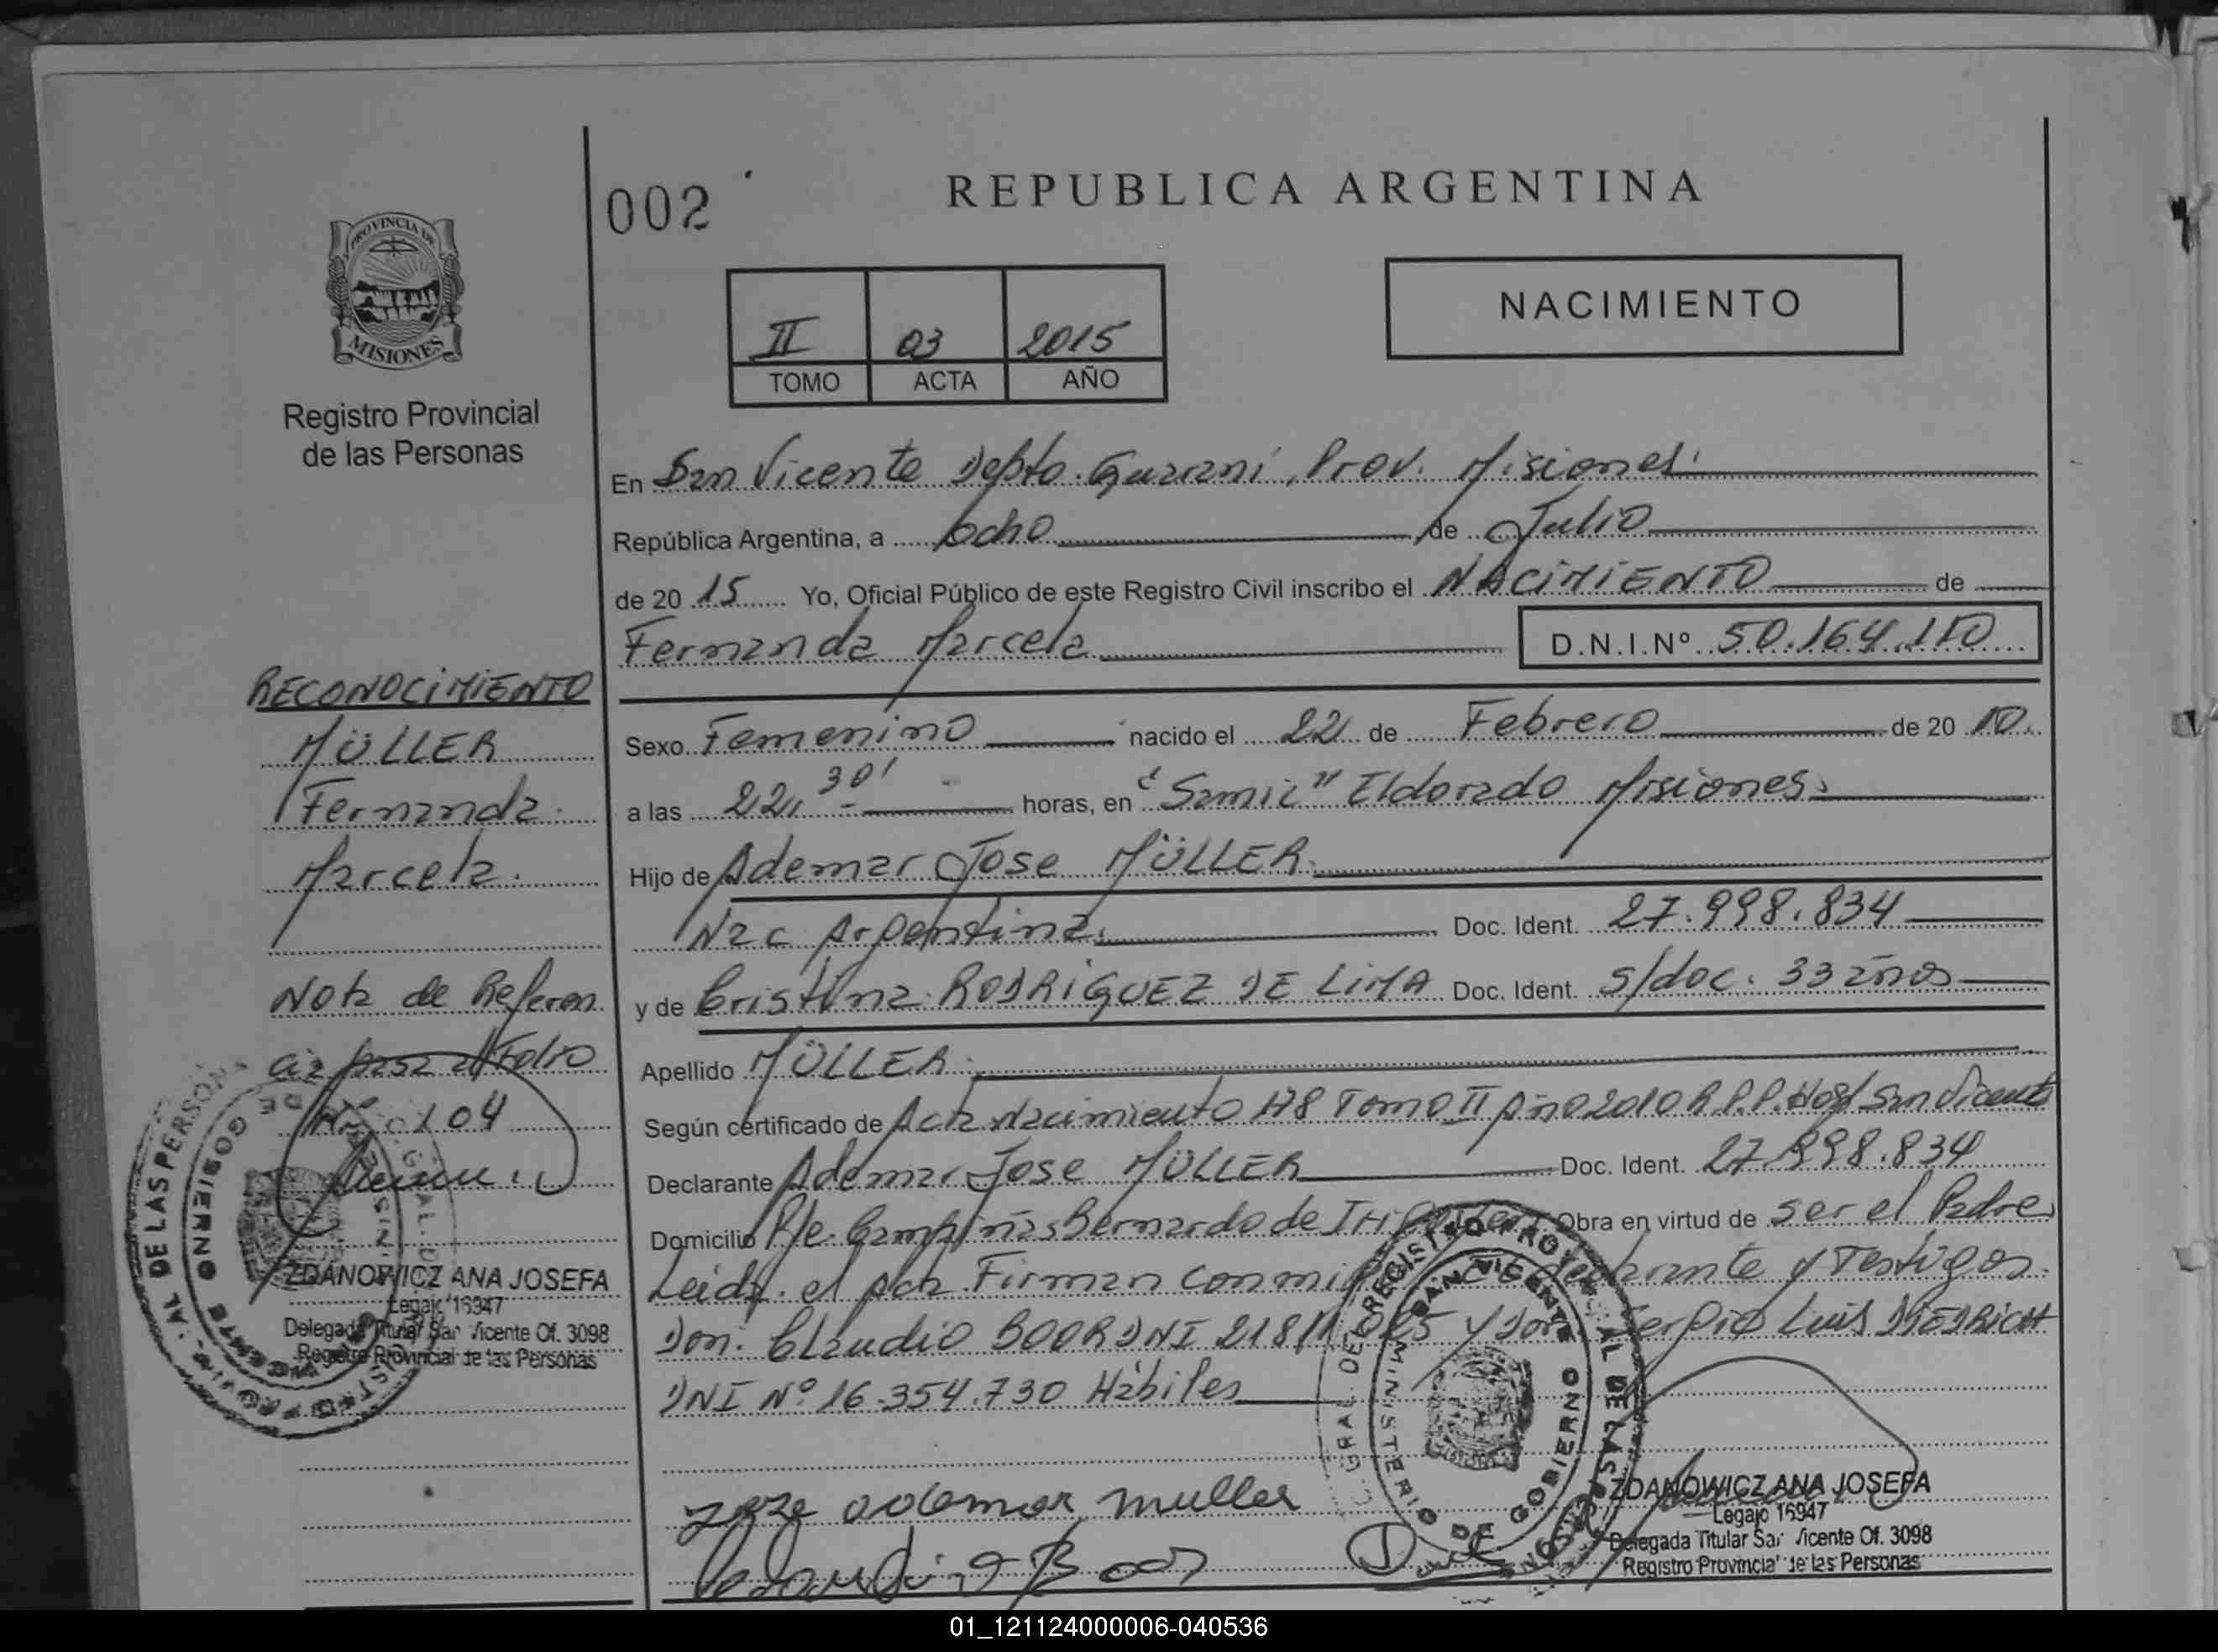 002
REPUBLICA ARGENTINA
PROVINCIA DE
MISIONES
Registro Provincial
de las Personas
NACIMIENTO
II 03 2015
TOMO ACTA AÑO
En San Vicente Depto. Guarani, Prov. Misiones.
República Argentina, a ocho de Julio
de 20 15 Yo, Oficial Público de este Registro Civil inscribo el NACIMIENTO de
Fernanda Marcela
D.N.I.Nº 50.164.110
Sexo Femenino nacido el 22 de Febrero de 20 10.
a las 22, 30' horas, en "Samic" Eldorado Misiones.
Hijo de Ademar Jose MÜLLER.
Nac Argentina. Doc. Ident. 27.998.834
y de Cristina RODRIGUEZ DE LIMA Doc. Ident. S/doc. 33 años
Apellido MÜLLER.
Según certificado de Acta Nacimiento 178 Tomo II Año 2010 R.P.P. Hosp San Vicente
Declarante Ademar Jose MÜLLER Doc. Ident. 27.998.834
Domicilio Pje. Campiñas Bernardo de Obra en virtud de ser el Padre
Leida el Acta Firman conmigo declarante y Testigos.
Don: Claudio BOOR DNI 218 y Don Sergio Luis DIEDRICH
DNI Nº 16.354.730 Hábiles
RECONOCIMIENTO
MÜLLER
Fernanda
Marcela.
Nota de Referen
cia pasa al Folio
Nº 0104
ZDANOWICZ ANA JOSEFA
Legajo 15947
Delegada Titular San Vicente Of. 3098
Registro Provincial de las Personas
jose ademar muller
Claudio Boor
GRAL. DEL REGISTRO PROVINCIAL DE LAS PERSONAS
SAN VICENTE
MINISTERIO DE GOBIERNO
ZDANOWICZ ANA JOSEFA
Legajo 15947
Delegada Titular San Vicente Of. 3098
Registro Provincial de las Personas
01_121124000006-040536